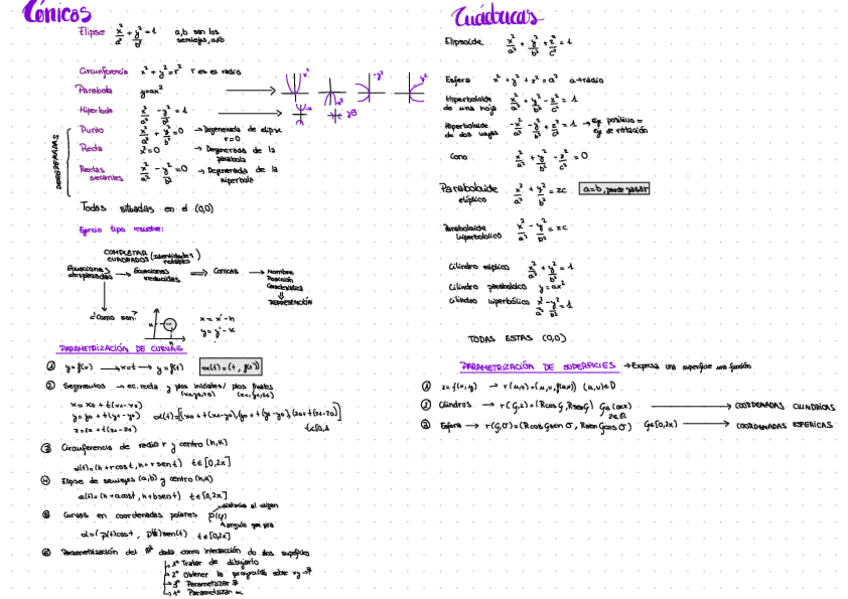 Cónicas
Elipse x²/a² + y²/b² = 1 a,b son los semiejes, a≥b
Circunferencia x² + y² = r² r es el radio
Parabola y=ax²
Hiperbola x²/a² - y²/b² = 1
DEGENERADAS
Punto x²/a² + y²/b² = 0 → Degenerada de elipse r=0
Recta x²=0 → Degenerada de la parabola
Rectas secantes x²/a² - y²/b² = 0 → Degenerada de la hiperbola
Todas situadas en el (0,0)
Ejercicio tipo resuelve:
COMPLETAR CUADRADOS (identidades notables)
Ecuaciones desplazadas → Ecuaciones reducidas ⇒ Conicas → Nombre
Posición
Característica
⇓
REPRESENTACIÓN
¿Como son?
x = x' - h
y = y' - k
PARAMETRIZACIÓN DE CURVAS
① y=f(x) → x=t → y=f(t) α(t)=(t, f(t))
② Segmentos → ec. recta y ptos iniciales/ ptos finales
x = x₀ + t(x₁-x₀)
y = y₀ + t(y₁-y₀) α(t)=[(x₀ + t(x₁-x₀), (y₀ + t(y₁-y₀), (z₀ + t(z₁-z₀)]
z = z₀ + t(z₁-z₀) t∈[0,1]
③ Circunferencia de radio r y centro (h,k)
α(t)=(h+rcost, k+rsent) t∈[0,2π]
④ Elipse de semiejes (a,b) y centro (h,k)
α(t)=(h+acost, k+bsent) t∈[0,2π]
⑤ Curvas en coordenadas polares ρ(φ)
distancia al origen
Angulo que gira
α=(ρ(t)cost, ρ(t)sen(t) t∈[0,2π]
⑥ Parametrización del dada como intersección de dos superficies
1º Tratar de dibujarlo
2º Obtener la proyección sobre xy →
3º Parametrizar
4º Parametrizar α
Cuádricas
Elipsoide x²/a² + y²/b² + z²/c² = 1
Esfera x² + y² + z² = a² a→radio
Hiperboloide de una hoja x²/a² + y²/b² - z²/c² = 1
Hiperboloide de dos hojas -x²/a² - y²/b² + z²/c² = 1 → Eje positivo = ej de rotación
Cono x²/a² + y²/b² - z²/c² = 0
Paraboloide elíptico x²/a² + y²/b² = zc a=b, puede pasar
Paraboloide hiperbolico x²/a² - y²/b² = zc
Cilindro eliptico x²/a² + y²/b² = 1
Cilindro parabolico y=ax²
Cilindro hiperbólico x²/a² - y²/b² = 1
TODAS ESTAS (0,0)
PARAMETRIZACIÓN DE SUPERFICIES → Expresa una superficie una función
① z=f(x,y) → r(u,v)=(u,v,f(u,v)) (u,v)∈D
② Cilindros → r(θ,z)=(Rcosθ, Rsenθ) → COORDENADAS CILINDRICAS
③ Esfera → COORDENADAS ESFERICAS